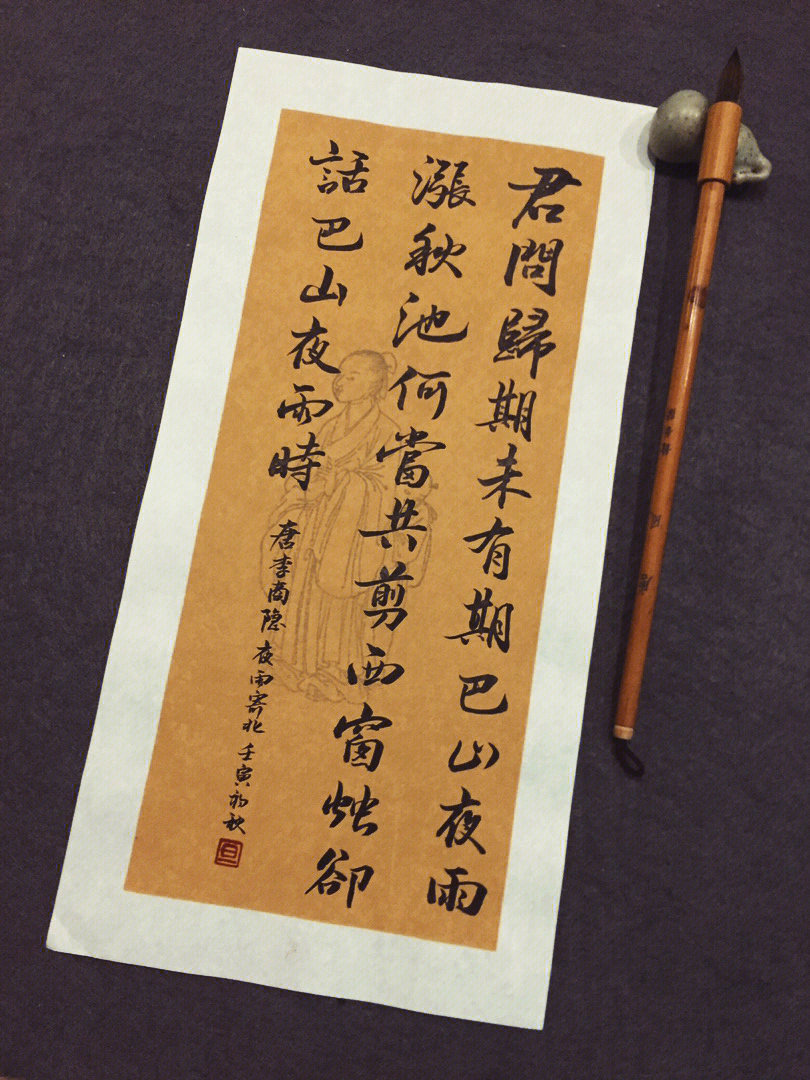 君問歸期未有期巴山夜雨
漲秋池何當共剪西窗燭卻
話巴山夜雨時
唐李商隐夜雨寄北壬寅初秋